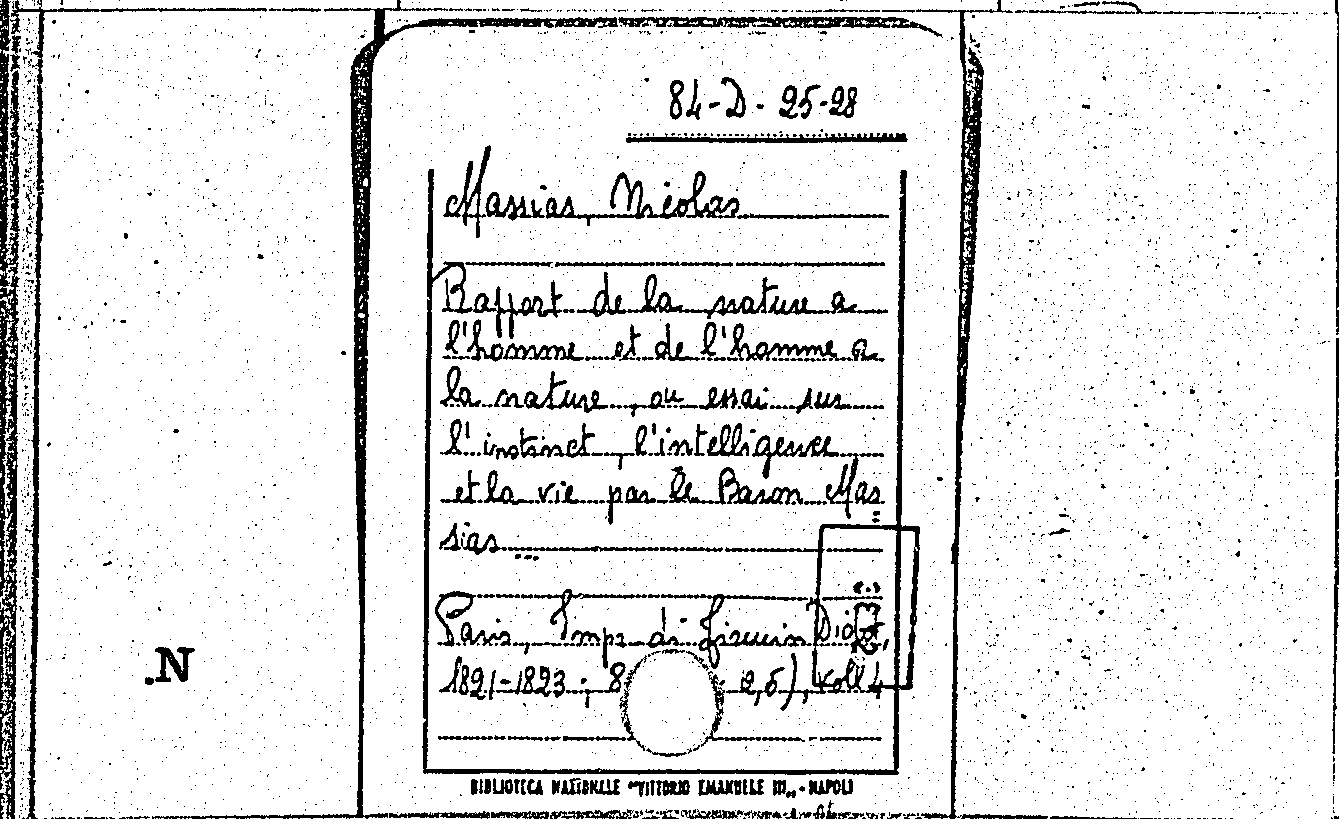 84-D- 25-28
Massias, Nicolas
Rapport de la nature a
l'homme et de l'homme a
la nature, ou essai sur
l'instinct, l'intelligence
et la vie par le Baron Mas
sias ...
Paris, Impr. di Firmin Didot,
1821-1823; 8 2,5), voll 4
.N
BIBLIOTECA NAZIONALE "VITTORIO EMANUELE III" - NAPOLI